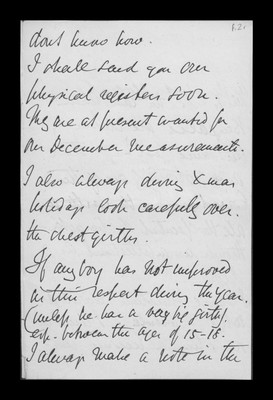 f.2.
dont know how.
I shall send you our
physical registers soon.
They are at present wanted for
our December measurements.
I also always during Xmas
holidays look carefully over.
the chest girths.
If any boy has not improved
in this respect during the year.
(unless he has a very big girth).
esp. between the ages of 15-18.
I always make a note in the